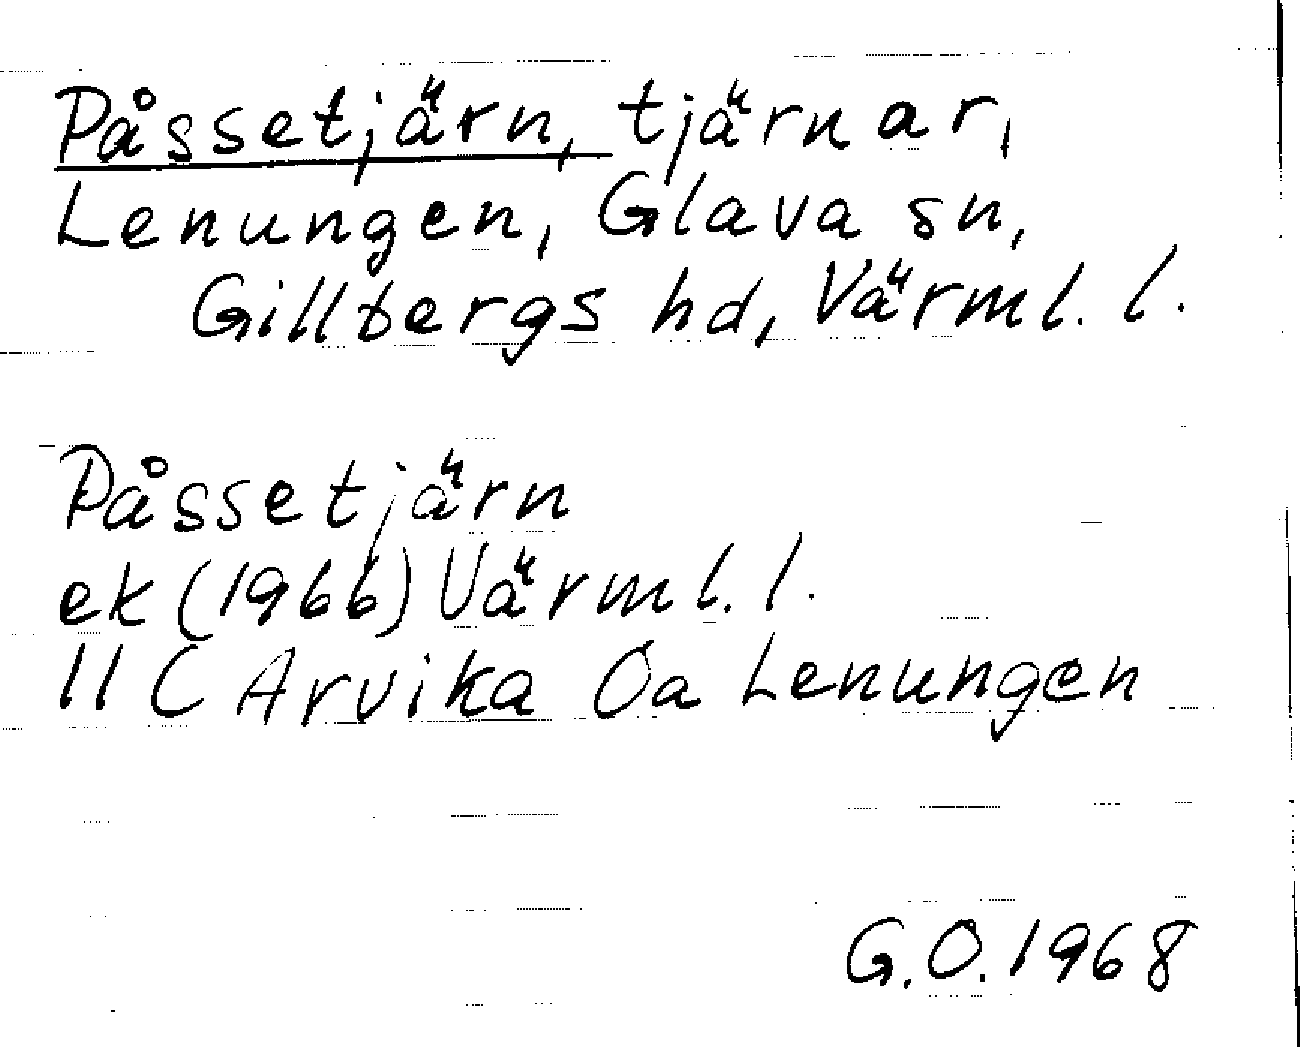 Påssetjärn, tjärnar,
Lenungen, Glava sn,
Gillbergs hd, Värml. l.
Påssetjärn
ek (1966) Värml. l.
11 C Arvika Öa Lenungen
G.O. 1968